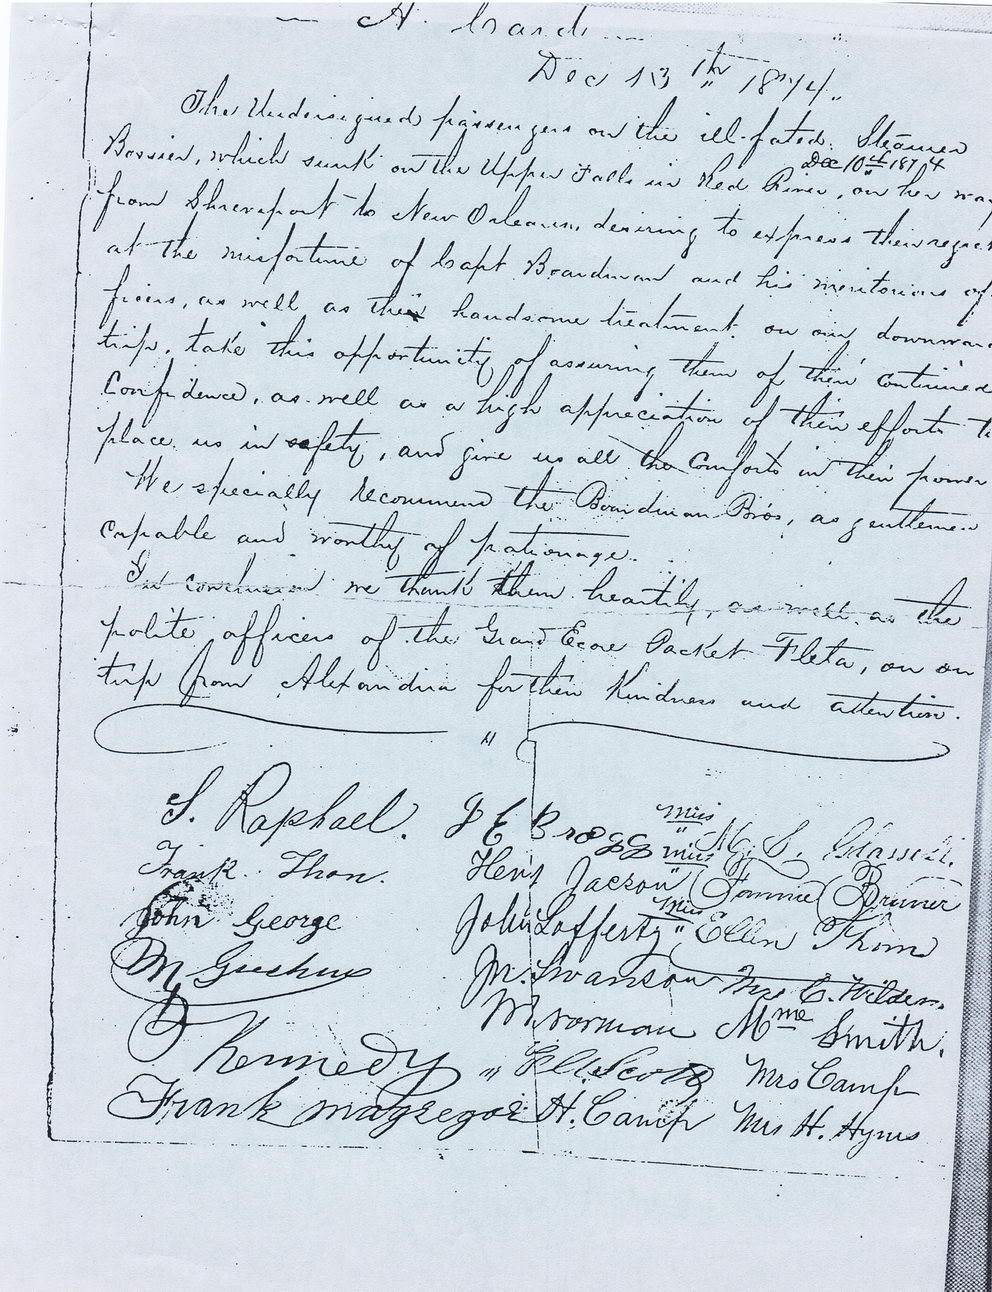 A. Card
Dec 13th 1874.
The Undersigned passengers on the ill-fated Steamer
Dec 10th 1874
Bossier, which sunk on the Upper Falls in Red River, on her way
from Shreveport to New Orleans, desiring to express their regret
at the misfortune of Capt Boardman and his meritorious of-
ficers, as well as their handsome treatment on our downward
trip, take this opportunity of assuring them of their continued
Confidence, as well as a high appreciation of their efforts to
place us in safety, and give us all the Comforts in their power
We specially recommend the Boardman Bros, as gentlemen
capable and worthy of patronage.
In conclusion we thank them heartily, as well as the
polite officers of the Grand Ecore Packet Fleta, on our
trip from Alexandria for their Kindness and attention.
S. Raphael. J E Brogg Miss M. S.
Frank Thon. Heny Jacson Miss Fannie Bruner
John George John Lafferty Miss Ellen Thom
M J M. Swanson Mrs C. Wilder.
M Norman Mme Smith.
Kennedy Scott Mrs Camp
Frank Magregor H. Camp Mrs H. Hynes